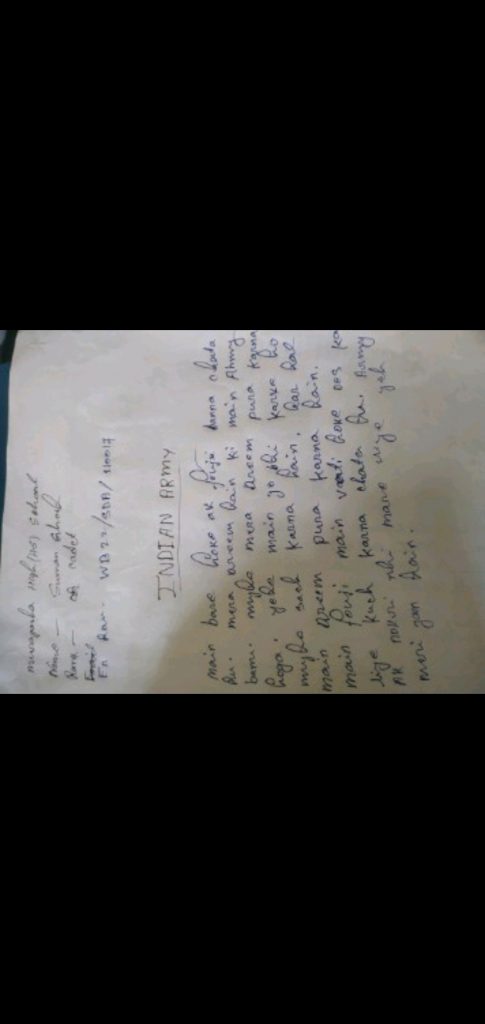 High (HS) School
Name - Suman Ghosh
Rank - cdt cadet
En No. WB22/SDA/
INDIAN ARMY
main bare hoke ak fouji banna chata
hu. mera dreem hain ki main Army
banu. mujhe mera dreem pura karna
hoga. yeke main jo bhi karke ho
mujhe sach karna hain. har hal
main dreem pura karna hain.
main fouji main vati hoke oos ka
liye kuch karna chata hu. Army
ak nokri nhi mare liye yeh
meri jan hain.